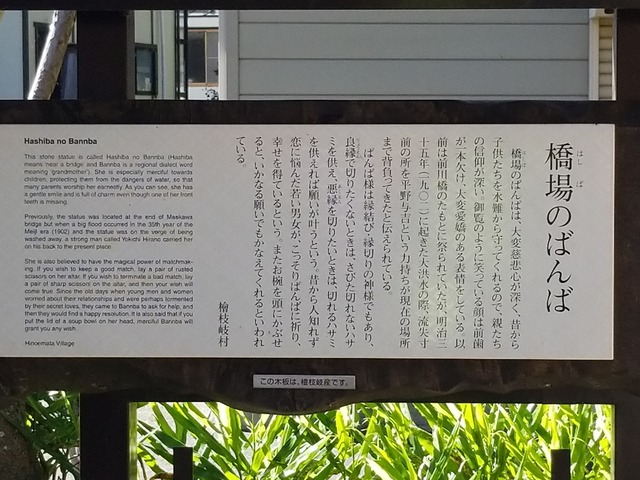 橋場のばんば
はしば
橋場のばんばは、大変慈悲心が深く、昔から
子供たちを水難から守ってくれるので、親たち
の信仰が深い。御覧のように笑っている顔は前歯
が一本かけ、大変愛嬌のある表情をしている。以
前は前川橋のたもとに祭られていたが、明治三
十五年（一九〇二）に起きた大洪水の際、流失寸
前の所を平野与吉という力持ちが現在の場所
まで背負ってきたと伝えられている。
ばんば様は縁結び・縁切りの神様でもあり、
良縁で切りたくないときは、さびた切れないハサ
ミを供え、悪縁を切りたいときは、切れるハサミ
を供えれば願いが叶うという。昔から人知れず
恋に悩んだ若い男女が、こっそりばんばに祈り、
幸せを得ているという。またお椀を頭にかぶせ
ると、いかなる願いでもかなえてくれるといわれ
ている。
檜枝岐村
Hashiba no Bannba
This stone statue is called Hashiba no Bannba (Hashiba
means 'near a bridge' and Bannba is a regional dialect word
meaning 'grandmother'). She is especially merciful towards
children, protecting them from the dangers of water, so that
many parents worship her earnestly. As you can see, she has
a gentle smile and is full of charm even though one of her front
teeth is missing.
Previously, the statue was located at the end of Maekawa
bridge but when a big flood occurred in the 35th year of the
Meiji era (1902) and the statue was on the verge of being
washed away, a strong man called Yokichi Hirano carried her
on his back to the present place.
She is also believed to have the magical power of matchmak-
ing. If you wish to keep a good match, lay a pair of rusted
scissors on her altar. If you wish to terminate a bad match, lay
a pair of sharp scissors on the altar, and then your wish will
come true. Since the old days when young men and women
worried about their relationships and were perhaps tormented
by their secret loves, they came to Bannba to ask for help, and
then they would find a happy resolution. It is also said that if you
put the lid of a soup bowl on her head, merciful Bannba will
grant you any wish.
Hinoemata Village
この木板は、檜枝岐産です。